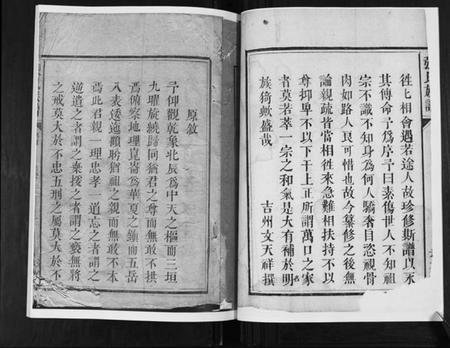 徃七相會遇若途人故珍修斯譜以永
其傳命予為序予曰素傷世人不知祖
宗不識不知身為何人驕奢目恣視骨
肉如路人良可惜也故今纂修之後無
論親疏皆當相徃來急難相扶持不以
尊抑卑不以下干上正所謂萬口之家
者莫若萃一宗之和氣是大有補於明
族猗歟盛哉
吉州文天祥撰
原敘
予仰觀乾象北辰為中天之樞而三垣
九曜旋繞歸同猶君之尊而無敢不拱
焉俯察地理崑崙為華夏之鎮而五岳
八表逶迤顧盼猶祖之親而無敢不本
焉此君親一理忠孝 道忘之者謂之
逆遺之者謂之棄援之者謂之褻無將
之戒莫大於不忠五刑之屬莫大於不